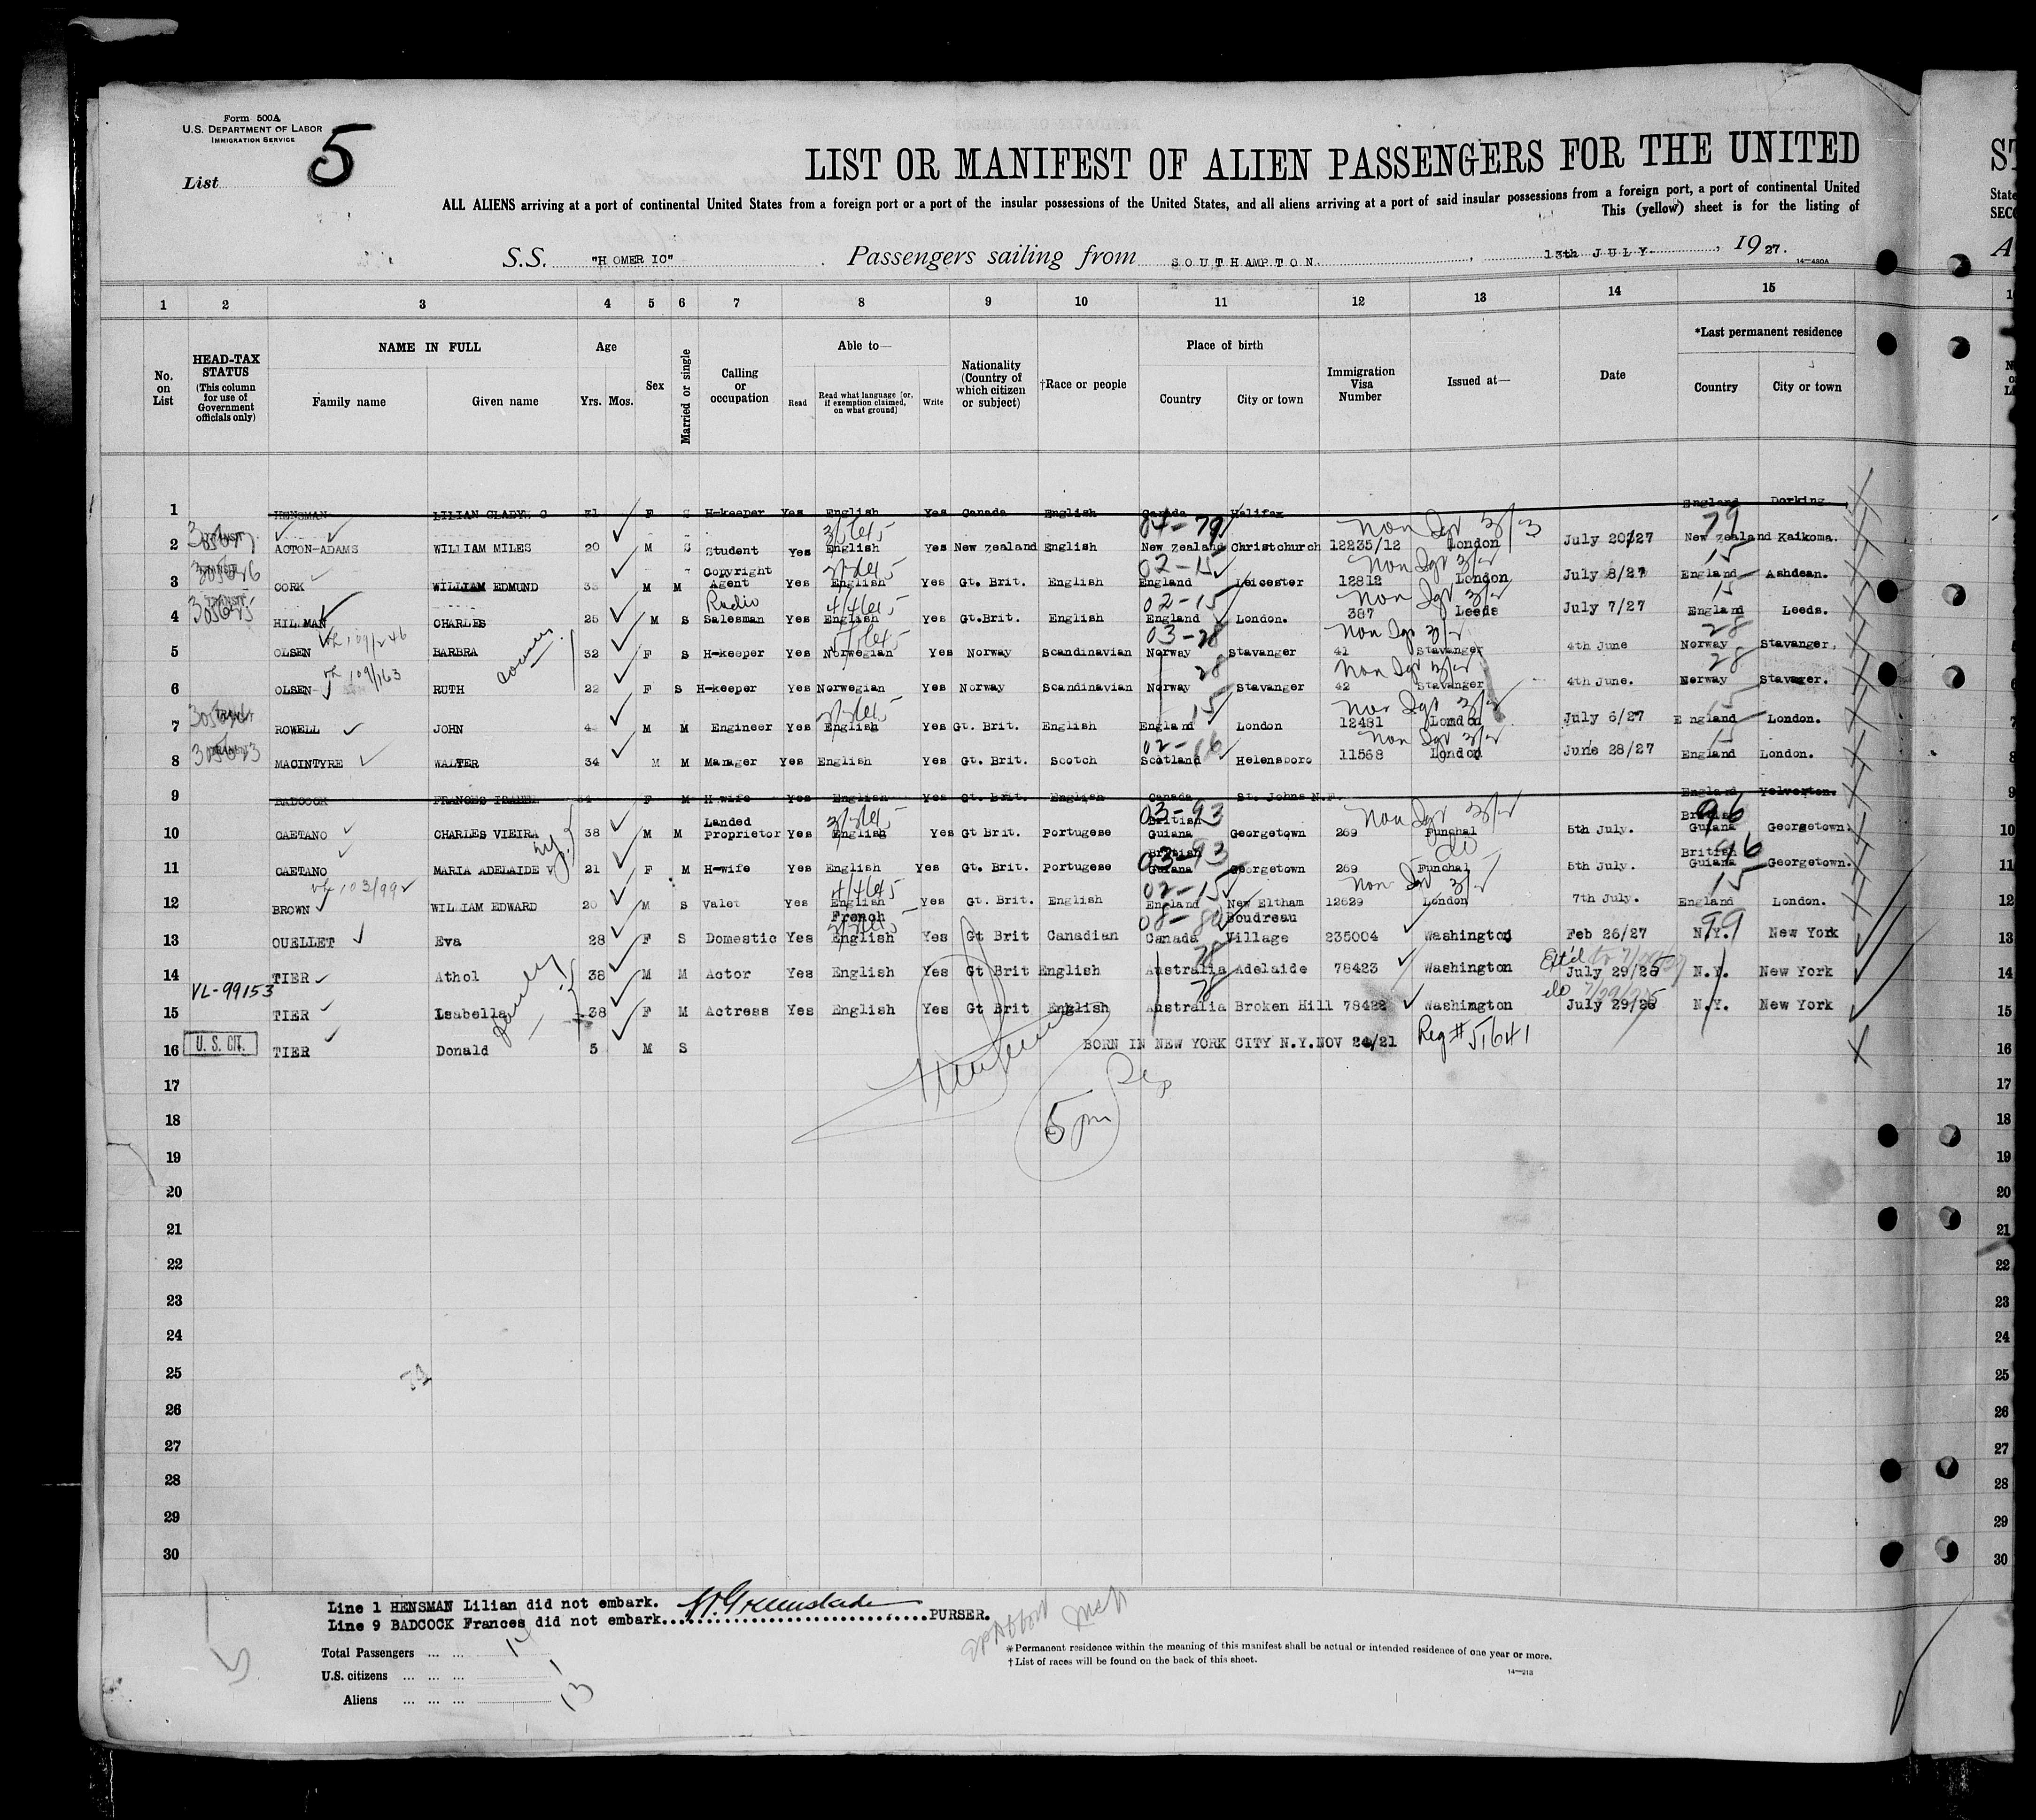 Form 500A
U.S. DEPARTMENT OF LABOR
IMMIGRATION SERVICE
List 5
LIST OR MANIFEST OF ALIEN PASSENGERS FOR THE UNITED
ALL ALIENS arriving at a port of continental United States from a foreign port or a port of the insular possessions of the United States, and all aliens arriving at a port of said insular possessions from a foreign port, a port of continental United
This (yellow) sheet is for the listing of
S.S. "HOMERIC" Passengers sailing from SOUTHAMPTON, 13th JULY, 1927.
14-480A
1 2 3 4 5 6 7 8 9 10 11 12 13 14 15
No. on List
HEAD-TAX STATUS (This column for use of Government officials only)
NAME IN FULL
Family name Given name
Age
Yrs. Mos.
Sex
Married or single
Calling or occupation
Able to—
Read Read what language [or, if exemption claimed, on what ground] Write
Nationality (Country of which citizen or subject)
†Race or people
Place of birth
Country City or town
Immigration Visa Number
Issued at—
Date
*Last permanent residence
Country City or town
1 HENSMAN LILIAN GLADYS C F S H-keeper Yes English Yes Canada English Canada Halifax England Dorking
2 ACTON-ADAMS WILLIAM MILES 20 M S Student Yes English Yes New Zealand English New Zealand Christchurch 12235/12 London July 20/27 New Zealand Kaikoma.
3 CORK WILLIAM EDMUND M M Copyright Agent Yes English Yes Gt. Brit. English England Leicester 12812 London July 8/27 England Ashdean.
4 HILMAN CHARLES 25 M S Radio Salesman Yes English Yes Gt.Brit. English England London. 387 Leeds July 7/27 England Leeds.
5 OLSEN BARBRA 32 F S H-keeper Yes Norwegian Yes Norway Scandinavian Norway Stavanger 41 Stavanger 4th June Norway Stavanger.
6 OLSEN RUTH 22 F S H-keeper Yes Norwegian Yes Norway Scandinavian Norway Stavanger 42 Stavanger 4th June. Norway Stavanger.
7 ROWELL JOHN M M Engineer Yes English Yes Gt. Brit. English England London 12481 London July 6/27 England London.
8 MACINTYRE WALTER 34 M M Manager Yes English Yes Gt. Brit. Scotch Scotland Helensboro 11568 London June 28/27 England London.
9 BADCOCK FRANCES F M H-wife Yes English Yes Gt. Brit. English Canada St. Johns N.F. England Yelverton.
10 CAETANO CHARLES VIEIRA 38 M M Landed proprietor Yes English Yes Gt Brit. Portugese British Guiana Georgetown 269 Funchal 5th July. British Guiana Georgetown.
11 CAETANO MARIA ADELAIDE V 21 F M H-wife Yes English Yes Gt. Brit. Portugese British Guiana Georgetown 269 Funchal 5th July. British Guiana Georgetown.
12 BROWN WILLIAM EDWARD 20 M S Valet Yes English Yes Gt. Brit. English England New Eltham 12629 London 7th July. England London.
13 OUELLET Eva 28 F S Domestic Yes French English Yes Gt Brit Canadian Canada Boudreau Village 235004 Washington Feb 26/27 N.Y. New York
14 TIER Athol 38 M M Actor Yes English Yes Gt Brit English Australia Adelaide 78423 Washington July 29/26 N.Y. New York
VL-99153
15 TIER Isabella 38 F M Actress Yes English Yes Gt Brit English Australia Broken Hill 78422 Washington July 29/26 N.Y. New York
16 U. S. CIT. TIER Donald 5 M S BORN IN NEW YORK CITY N.Y. NOV 24/21 Reg# 51641
17
18
5 pm
19
20
21
22
23
24
25
26
27
28
29
30
Line 1 HENSMAN Lilian did not embark.
Line 9 BADCOCK Frances did not embark. PURSER.
Total Passengers ... ... 14
U.S. citizens ... ... ... 1
Aliens ... ... ... 13
*Permanent residence within the meaning of this manifest shall be actual or intended residence of one year or more.
†List of races will be found on the back of this sheet.
14-213